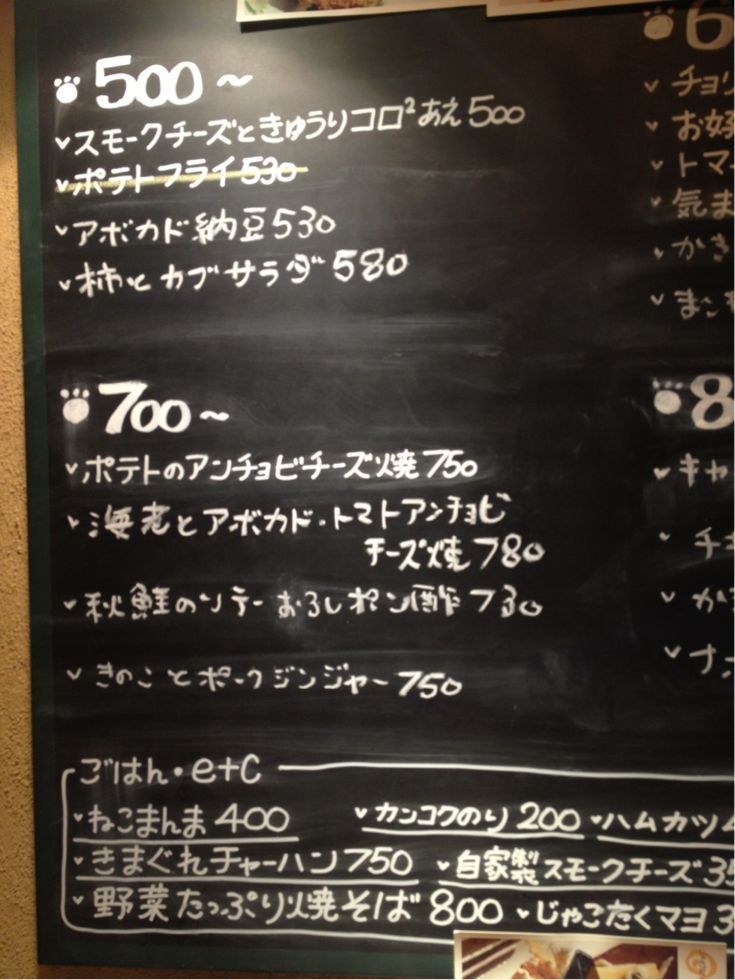 500~
スモークチーズときゅうりコロ²あえ 500
ポテトフライ 530
アボカド納豆 530
柿とカブサラダ 580
700~
ポテトのアンチョビチーズ焼 750
海老とアボカド・トマトアンチョビ
チーズ焼 780
秋鮭のソテー おろしポン酢 730
きのことポークジンジャー 750
6
チョリ
お好
トマ
気ま
かき
8
キャ
チキ
ナン
ごはん・etc
ねこまんま 400 カンコクのり 200 ハムカツ
きまぐれチャーハン 750 自家製スモークチーズ 35
野菜たっぷり焼そば 800 じゃこたくマヨ 3